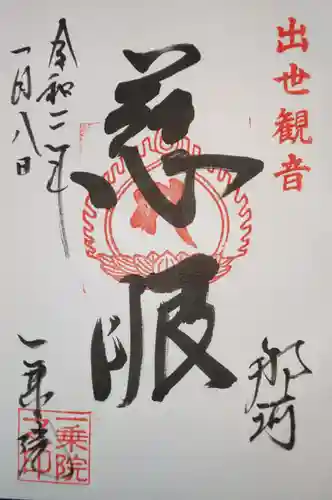 出世観音
那珂
慈眼
令和二年
一月八日
一乗院
一乗院
之印